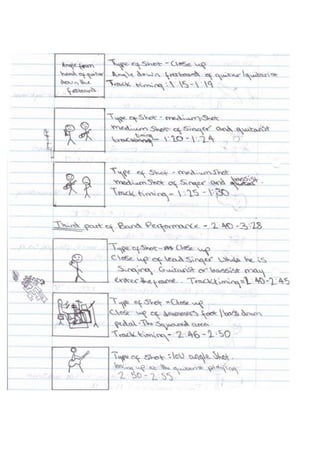 Angle from
head of guitar
down the
fretboard
Type of Shot - Close up
Angle down fretboard of guitar/guitarist
Track timing 1:15-1:19
Type of Shot - medium Shot
medium Shot of Singer and guitarist
timing
track - 1:20-1:24
Type of Shot - medium Shot
medium Shot of Singer and bassist
Track timing - 1:25 - 1:30
Third part of Band Performance - 2:40-3:28
Type of Shot - Close up
Close up of lead Singer While he is
Singing. Guitarist or bassist may
enter the frame. Track timing = 2:40-2:45
Type of Shot = Close up
Close up of drummers foot / bass drum
pedal - The Squared area
Track timing - 2:46 - 2:50
Type of Shot : low angle Shot.
of the guitarist playing
2:50 - 2:55